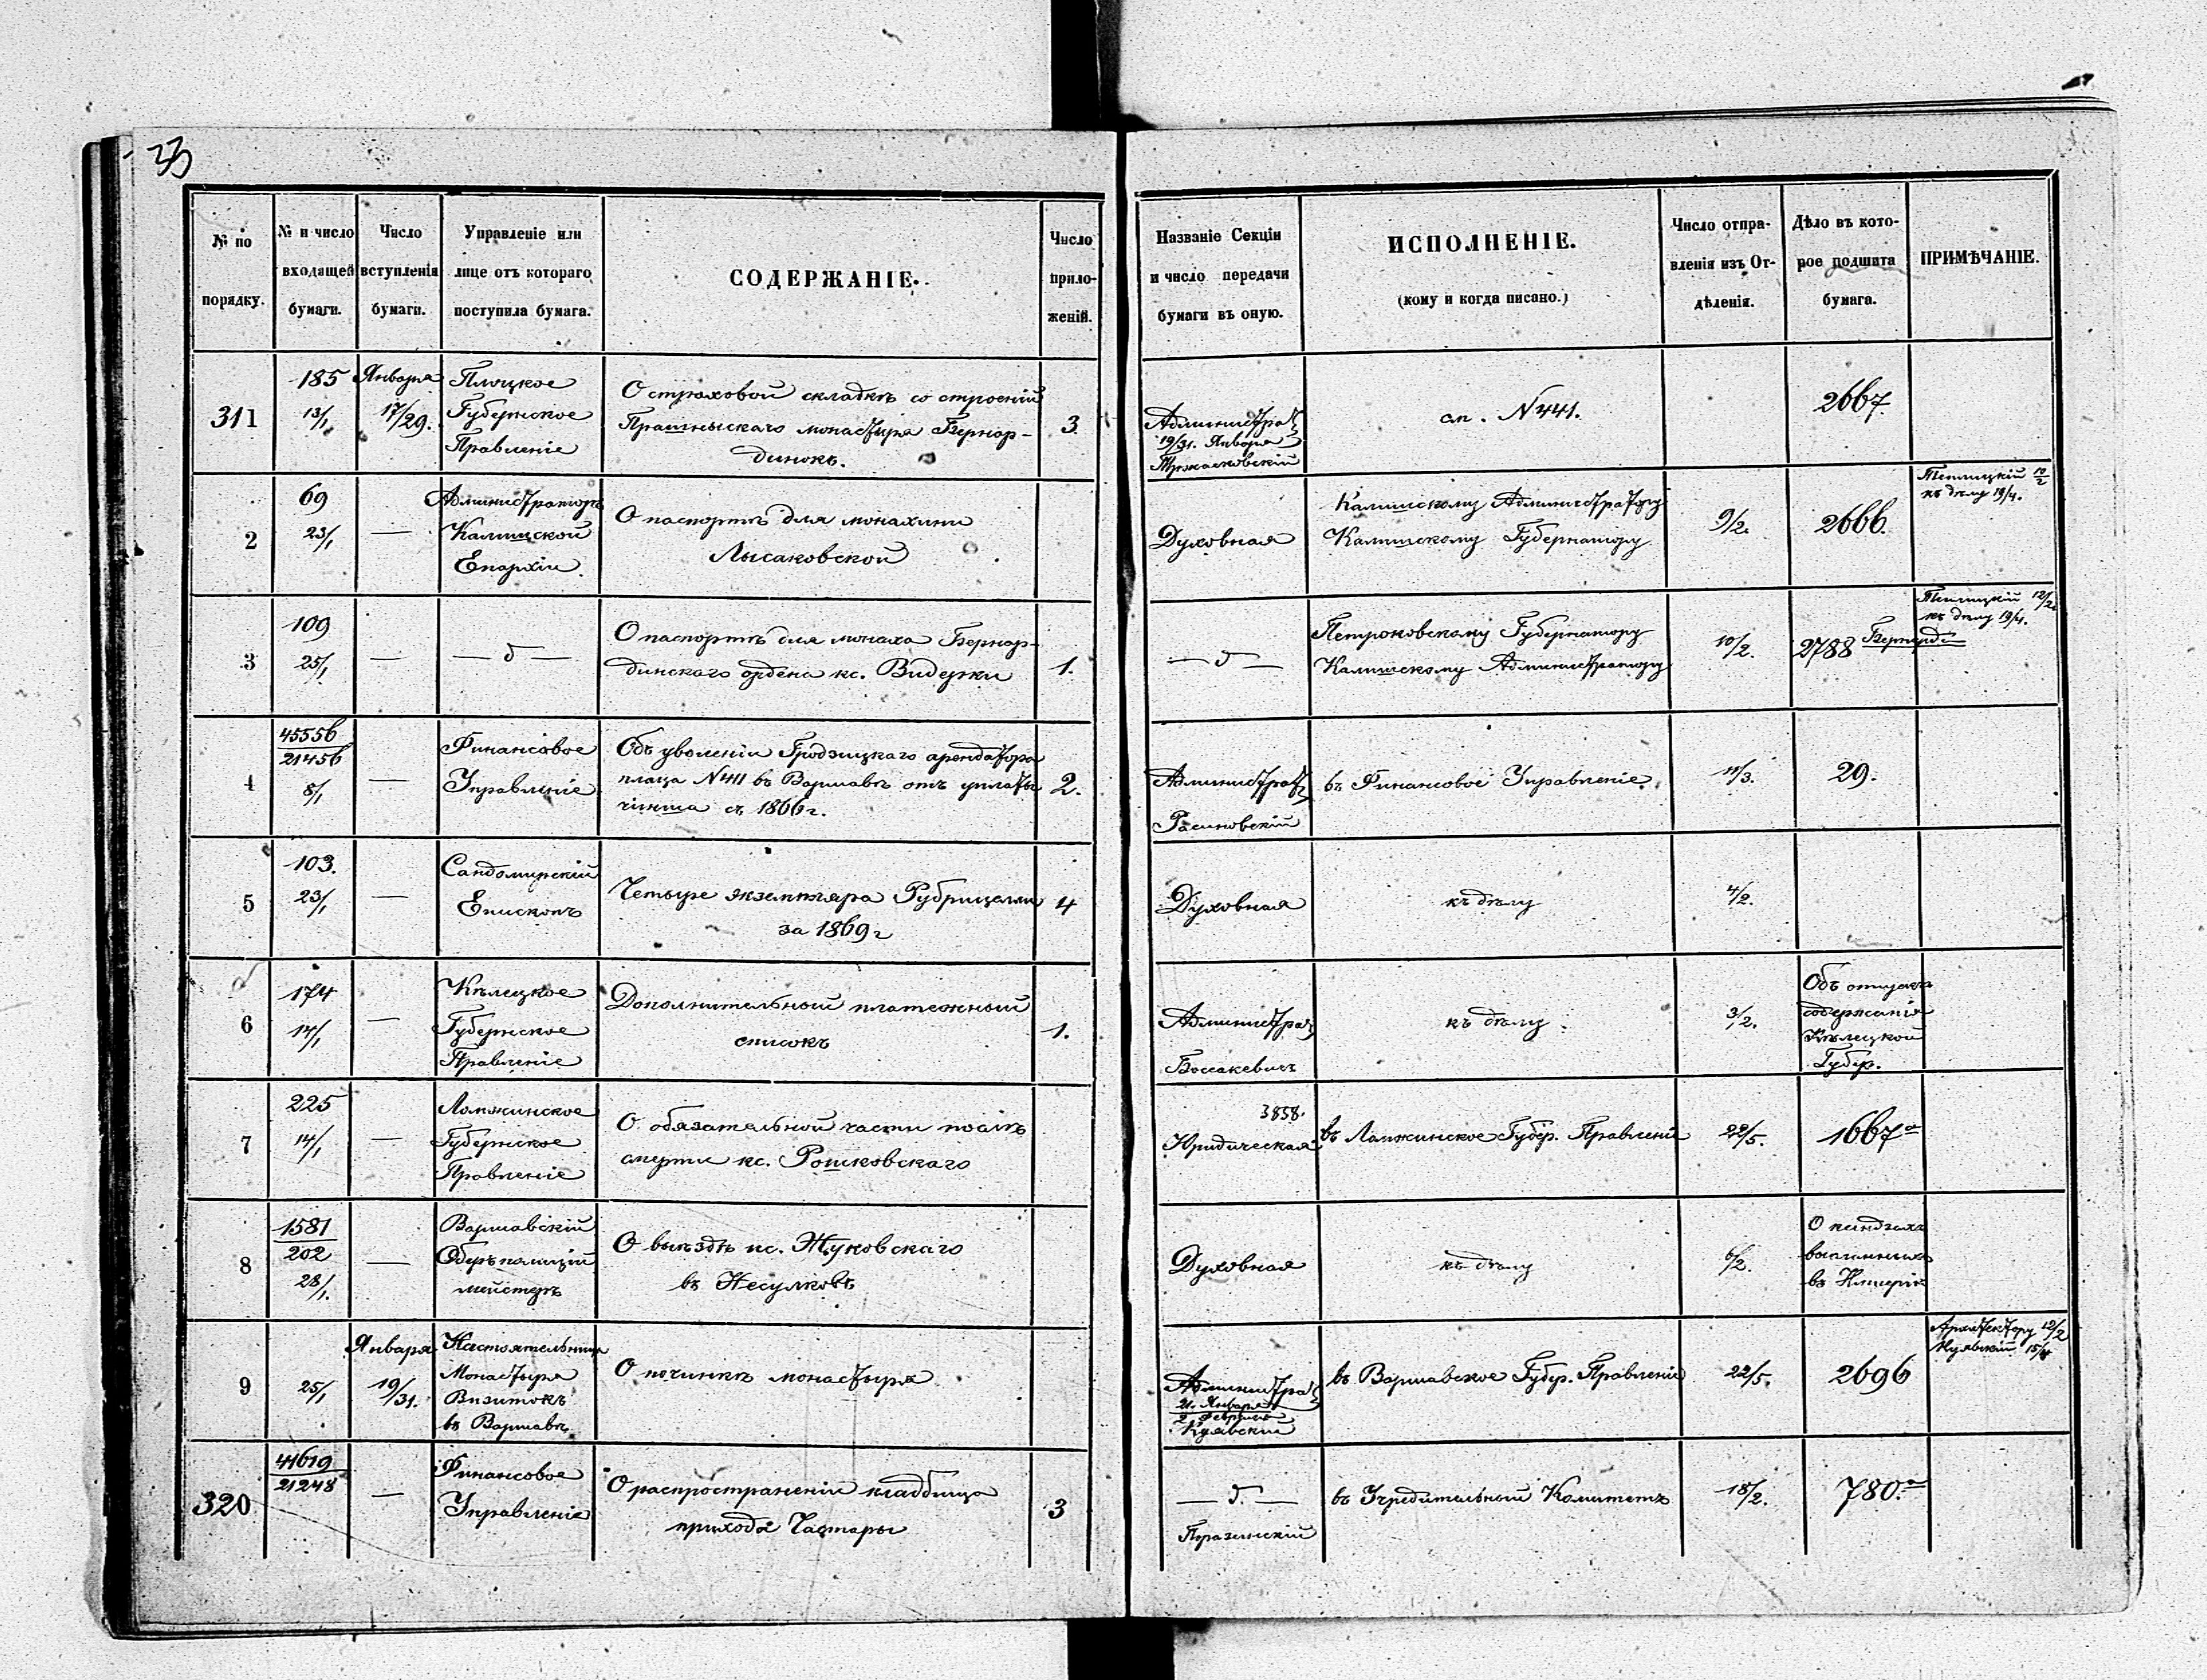 33
№ по порядку.
№ и число входящей бумаги.
Число вступленія бумаги.
Управленіе или лице отъ котораго поступила бумага.
СОДЕРЖАНІЕ.
Число приложеній.
Названіе Секціи и число передачи бумаги въ оную.
ИСПОЛНЕНІЕ.
(кому и когда писано.)
Число отправленія изъ Отдѣленія.
Дѣло въ которое подшита бумага.
ПРИМѢЧАНІЕ.
311
185
13/1
Января
17/29.
Плоцкое
Губернское
Правленіе
О страховой складкѣ со строеній
Прашнысскаго монастыря Бернар-
динокъ.
3.
Административ
19/31. Января
см. N 441.
2667.
2
69
23/1
—
Администраторъ
Калишской
Епархіи
О паспортѣ для монахини
Лысаковской
Духовная
Калишскому Администратору
Калишскому Губернатору
9/2.
2666.
къ дѣлу 19/4.
3
109
25/1
—
— д —
О паспортѣ для монаха Бернар-
динскаго ордена кс. Видерки
1.
— д —
Петроковскому Губернатору
Калишскому Администратору
10/2.
2788
Бернард
12/2
къ дѣлу 19/4.
4
45556
21456
8/1
—
Финансовое
Управленіе
Объ уволеніи Гродзицкаго арендатора
плаца N 411 въ Варшавѣ отъ уплаты
чинша съ 1866 г.
2.
Администрат
въ Финансовое Управленіе
11/3.
29.
5
103.
23/1
—
Сандомирскій
Епископъ
Четыре экземпляра Рубрицелли
за 1869 г
4
Духовная
къ дѣлу
4/2.
6
174
14/1
—
Кѣлецкое
Губернское
Правленіе
Дополнительный платежный
списокъ
1.
Администра
Боссакевичъ
къ дѣлу
3/2.
Объ отпускѣ
содержанія
Кѣлецкой
Губер.
7
225
14/1
—
Ломжинское
Губернское
Правленіе
О обязательной части послѣ
смерти кс. Рошковскаго
3858.
Юридическая
въ Ломжинское Губер. Правленіе
22/5.
1667а
8
1581
202
28/1.
—
Варшавскій
Оберъ полицій
мейстеръ
О выѣздѣ кс. Жуковскаго
въ Несулковъ
Духовная
къ дѣлу
6/2.
О ксендзахъ
высланныхъ
въ Имперію
9
25/1
Января
19/31.
Настоятельница
Монастыря
Визитокъ
въ Варшавѣ
О починкѣ монастыря
Администра
21. Января
2 Февраля
Куявскій
въ Варшавское Губер. Правленіе
22/5.
2696
Архитектору 12/2
Куявскій 15/4
320
41619
21248
—
Финансовое
Управленіе
О распространеніи кладбища
прихода Частары
3
— д. —
въ Учредительный Комитетъ
18/2.
780.а